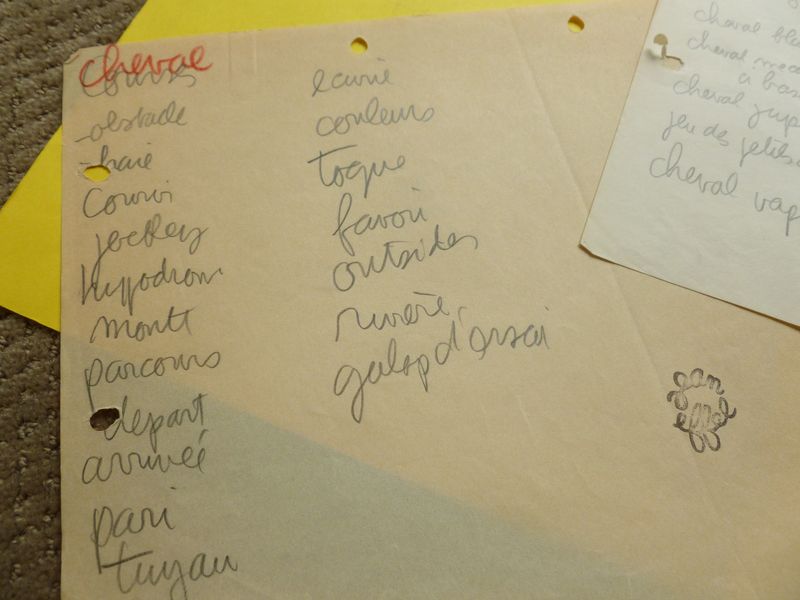 cheval
courses
-obstacle
-haie
Courir
jockey
hyppodrome
monte
parcours
départ
arrivée
pari
tuyau
écurie
couleurs
toque
favori
outsider
rivière
galop d'essai
cheval
cheval
cheval jup
jeu des petits
cheval vap
jean
effel